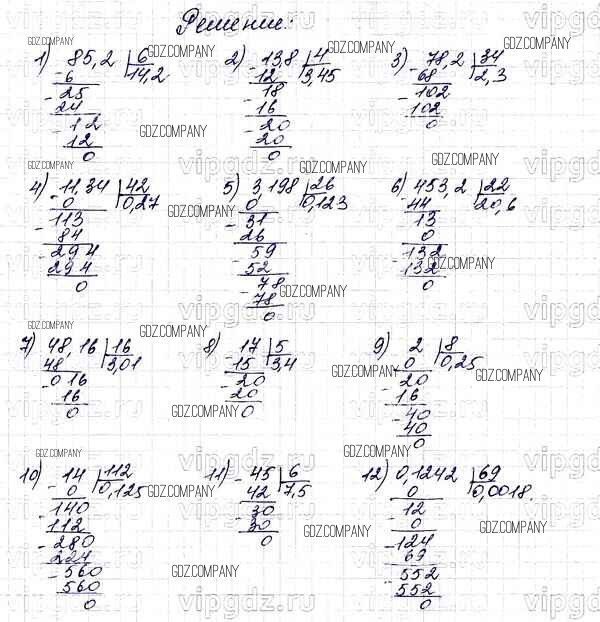 Решение:
1) 85,2 | 6
- 6 14,2
- 25
24
- 12
12
0
2) - 13,8 | 4
12 3,45
- 18
16
- 20
20
0
3) - 78,2 | 34
68 2,3
- 102
102
0
4) - 11,34 | 42
0 0,27
- 113
84
- 294
294
0
5) 3,198 | 26
0 0,123
- 31
26
- 59
52
- 78
78
0
6) 453,2 | 22
- 44 20,6
13
0
- 132
132
0
7) 48,16 | 16
48 3,01
- 016
16
0
8) - 17 | 5
15 3,4
- 20
20
0
9) - 2 | 8
0 0,25
- 20
16
- 40
40
0
10) - 14 | 112
0 0,125
- 140
112
- 280
224
- 560
560
0
11) - 45 | 6
42 7,5
- 30
30
0
12) 0,1242 | 69
0 0,0018.
- 12
0
- 124
69
- 552
552
0
GDZ.COMPANY
vipgdz.ru